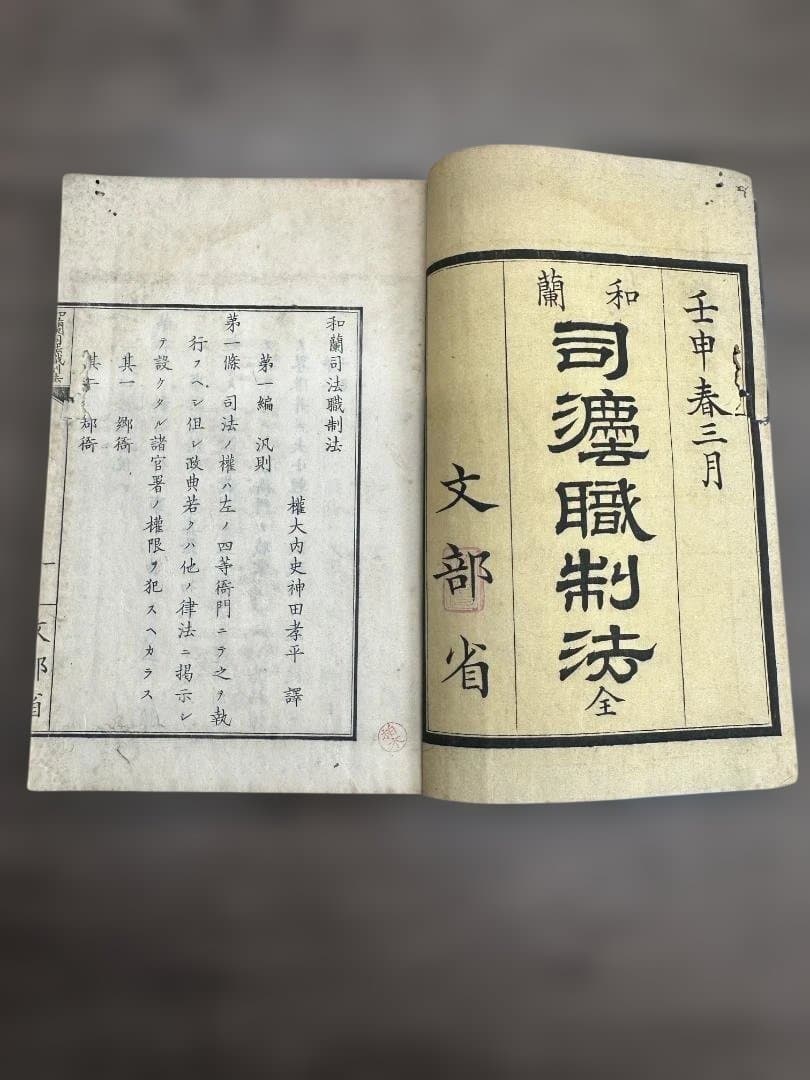 壬申春三月
和蘭
司灋職制法 全
文部省
和蘭司法職制法
權大内史神田孝平 譯
第一編 汎則
第一條 司法ノ權ハ左ノ四等衙門ニテ之ヲ執
行フヘシ但シ政典若クハ他ノ律法ニ掲示シ
テ設クタル諸官署ノ權限ヲ犯スヘカラス
其一 郷衙
其二 郡衙
和蘭司法職制法
一
文部省